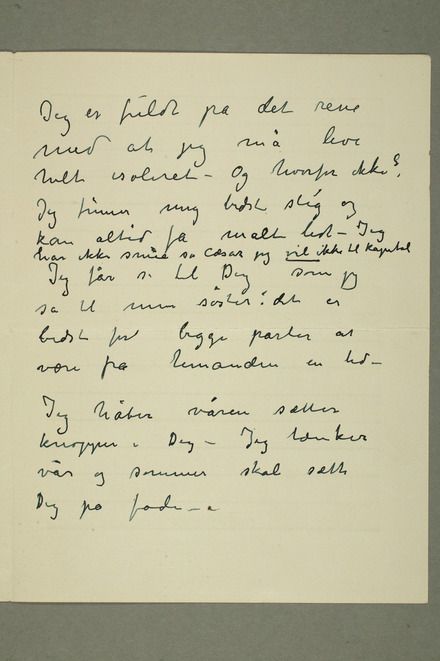 Jeg er fuldt på det rene
med at jeg må leve
helt isoleret – Og hvorfor ikke?
Jeg finner mig bedst slig og
kan altid få malt lidt – Jeg
har ikke smüe sa Cæsar jeg vil ikke til Kapital
Jeg får si til Dig som jeg
sa til min søster: det er
bedst for begge parter at
være fra hinanden en tid –
Jeg håber våren sætter
knopper i Dig – Jeg tænker
vår og sommer skal sætte
Dig på fode –